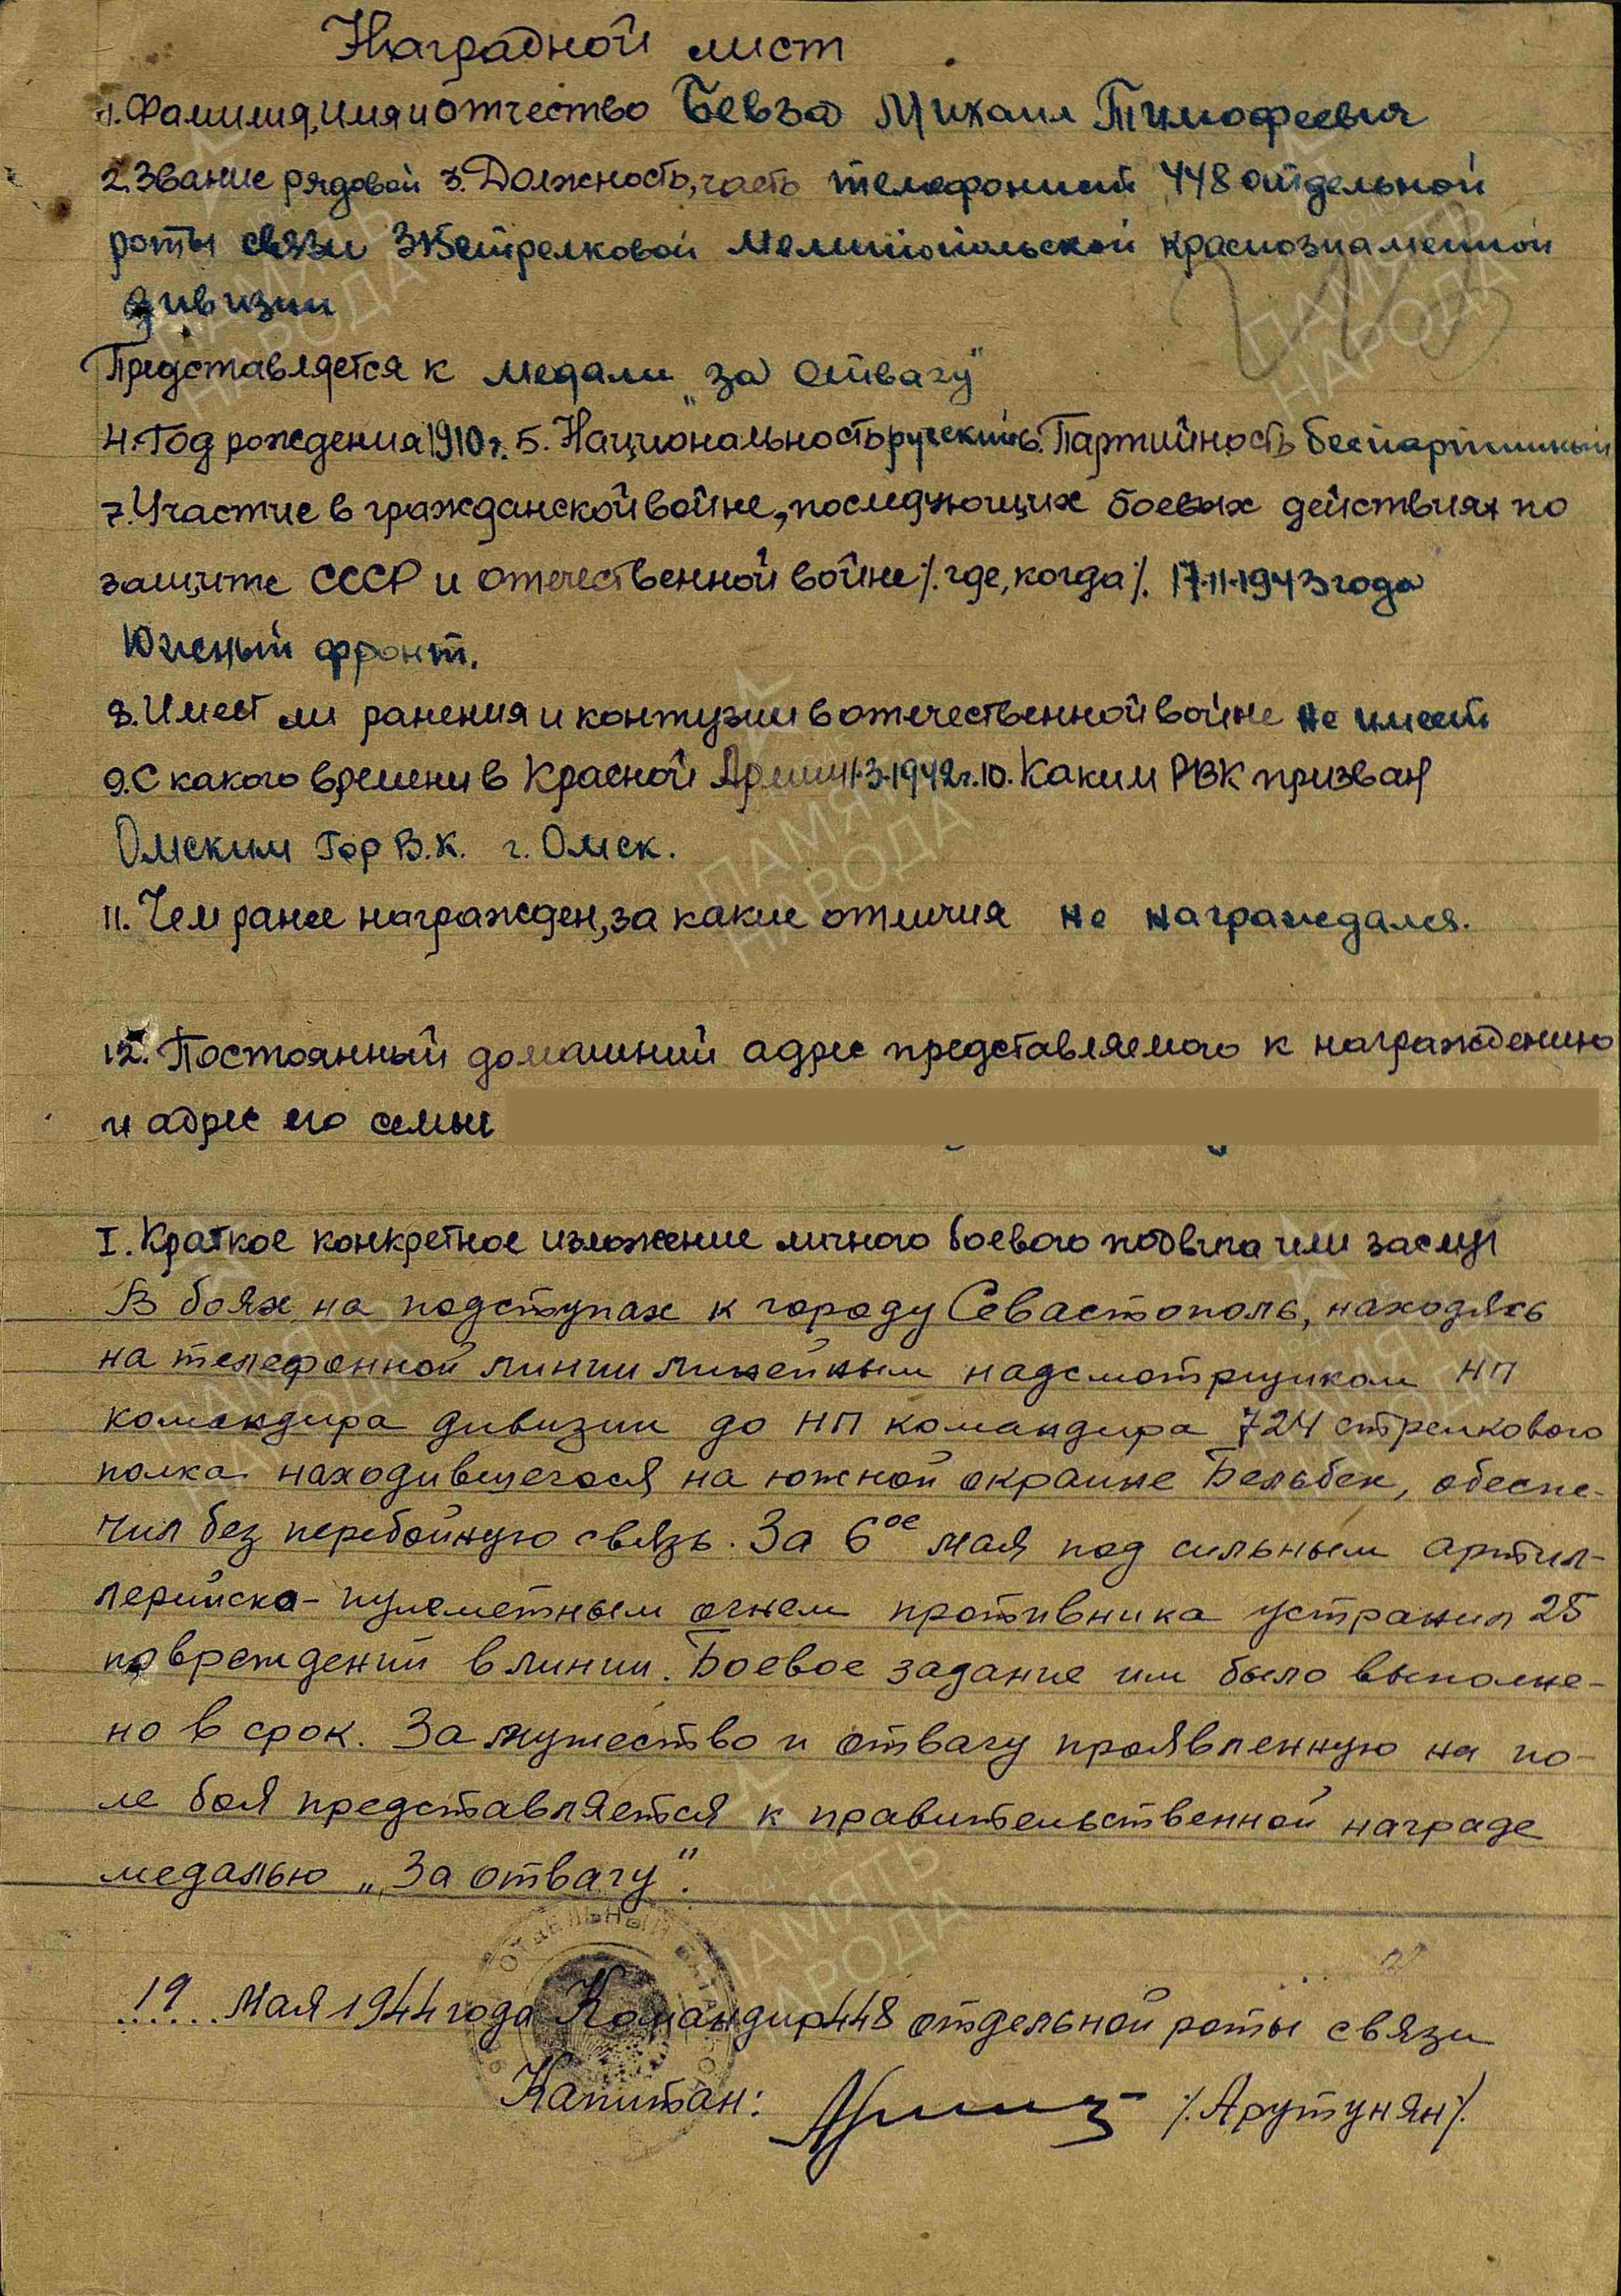 Наградной лист
1. Фамилия, имя и отчество Бевза Михаил Тимофеевич
2. Звание рядовой 3. Должность, часть телефонист 448 отдельной
роты связи стрелковой Мелитопольской краснознаменной
дивизии
Представляется к медали „за отвагу"
4. Год рождения 1910 г. 5. Национальность русский 6. Партийность беспартийный
7. Участие в гражданской войне, последующих боевых действиях по
защите СССР и отечественной войне /. где, когда /. 17.11.1943 года
Южный фронт.
8. Имеет ли ранения и контузии в отечественной войне не имеет
9. С какого времени в Красной Армии 3.1942 г. 10. Каким РВК призван
Омским Гор В.К. г. Омск.
11. Чем ранее награжден, за какие отличия не награждался.
12. Постоянный домашний адрес представляемого к награждению
и адрес его семьи
I. Краткое конкретное изложение личного боевого подвига или заслуг
В боях на подступах к городу Севастополь, находясь
на телефонной линии линейным надсмотрщиком НП
командира дивизии до НП командира 724 стрелкового
полка находившегося на южной окраине Бельбек, обеспе-
чил без перебойную связь. За 6ое мая под сильным артил-
лерийско-пулеметным огнем противника устранил 25
повреждений в линии. Боевое задание им было выполне-
но в срок. За мужество и отвагу проявленную на по-
ле боя представляется к правительственной награде
медалью „За отвагу".
19 Мая 1944 года Командир 448 отдельной роты связи
Капитан: /. Арутунян /.
ПАМЯТЬ
НАРОДА